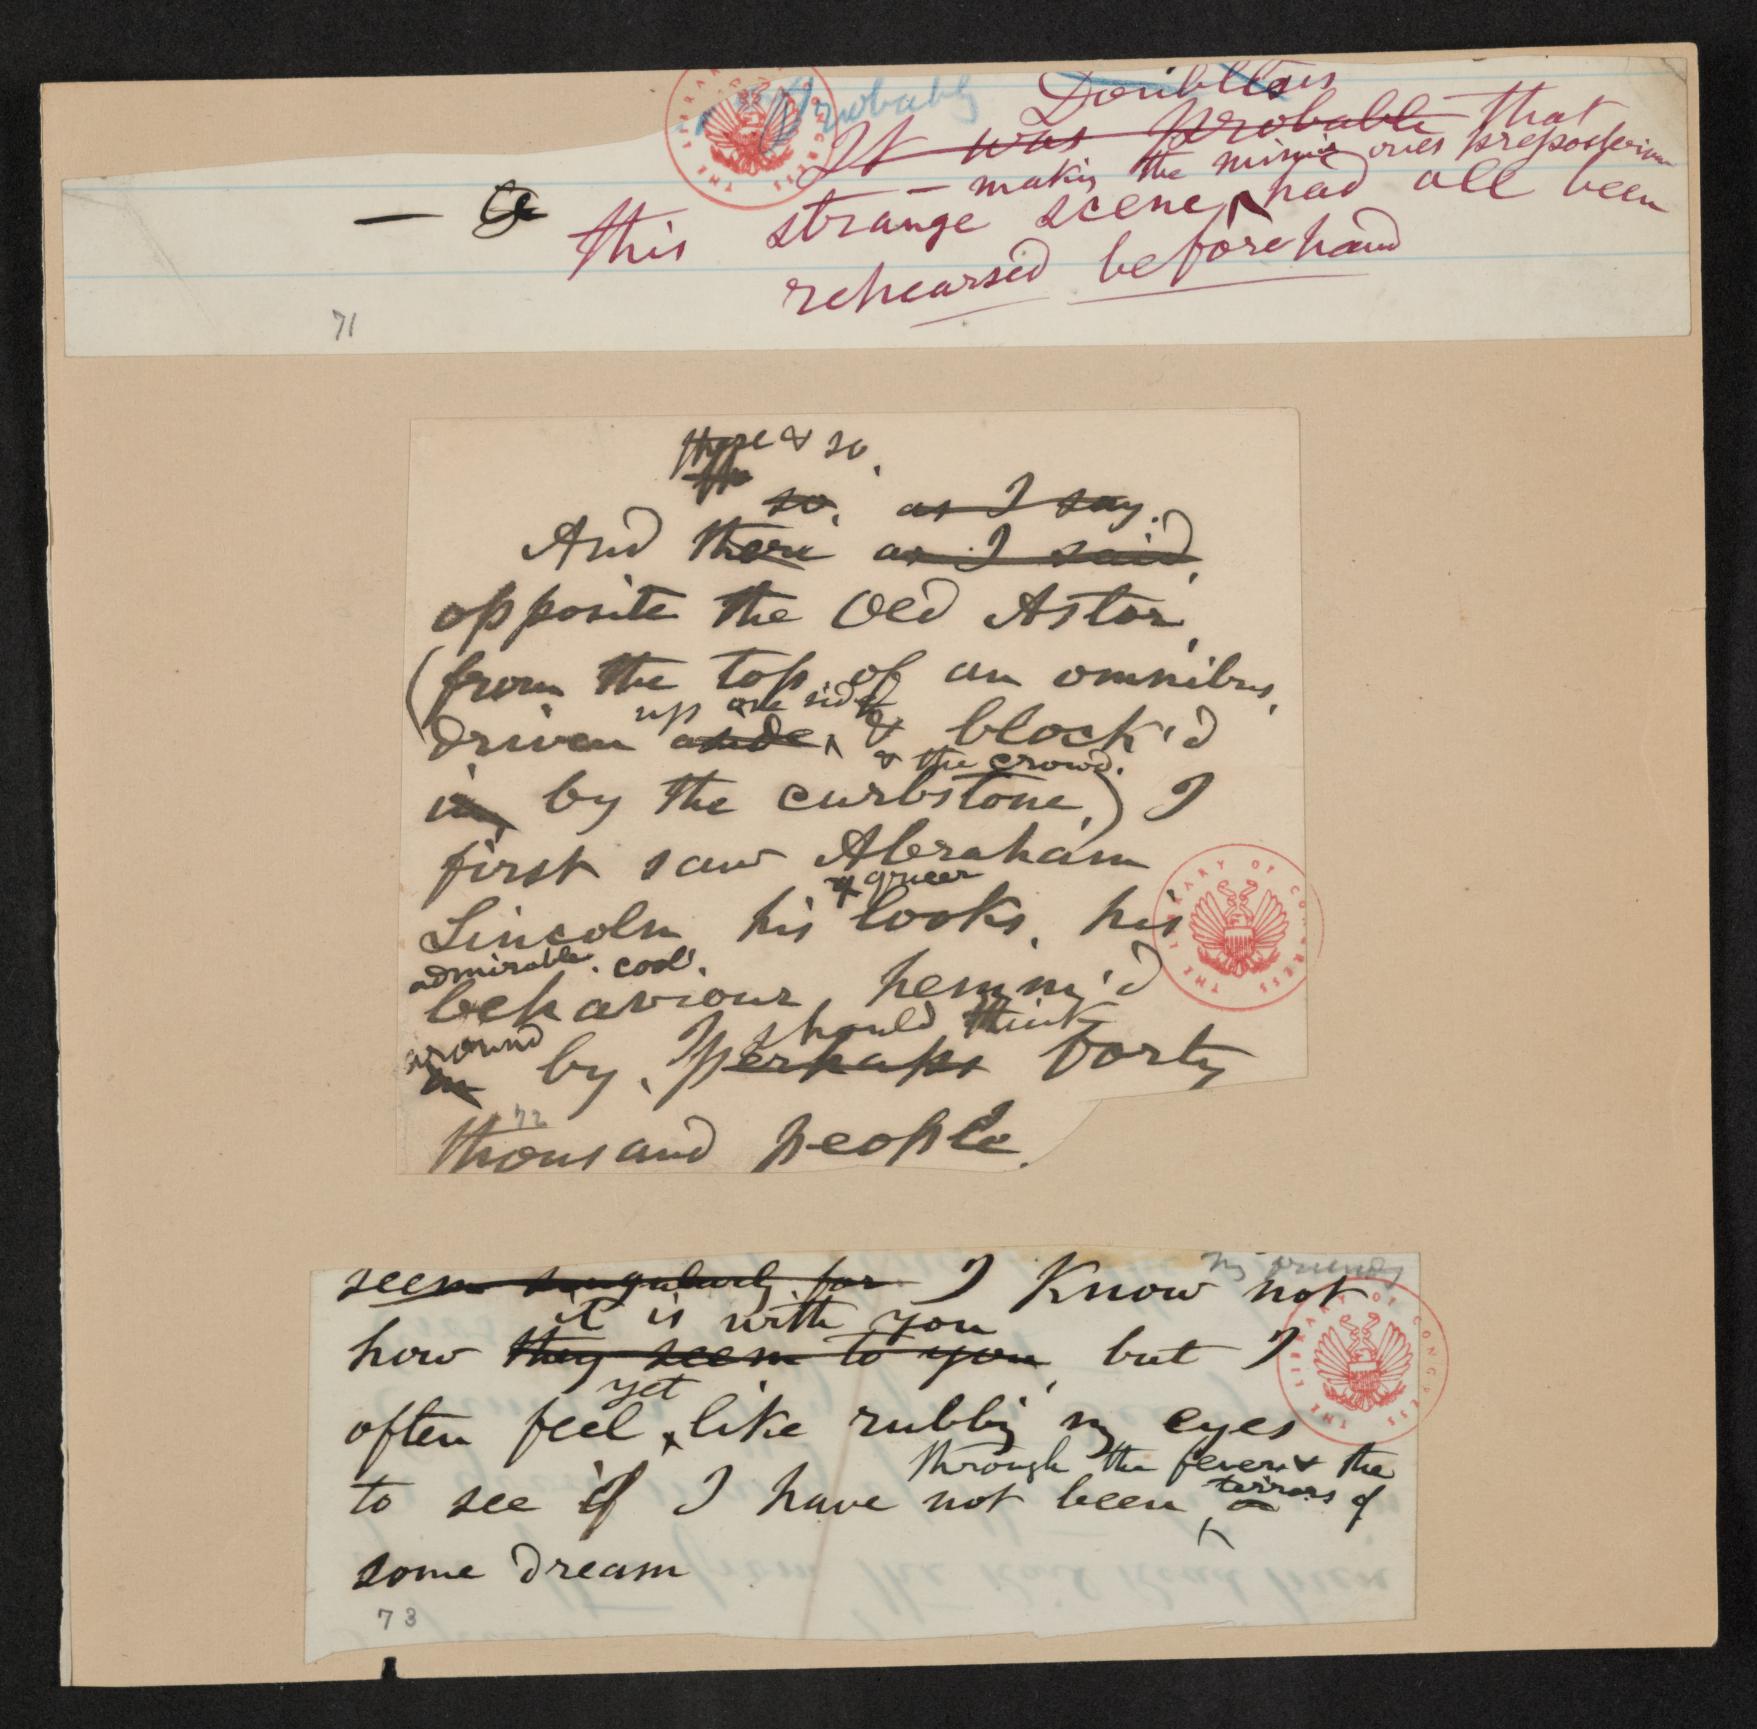 Probably
Doubtless
It was probable that
— makes the mimic ones preposterous
— this strange scene had all been
rehearsed beforehand
71
there & so,
so, as I say,
And there as I said,
opposite the Old Astor,
(from the top of an omnibus,
up one side
driven aside, & block'd
& the crowd,
in by the curbstone,) I
first saw Abraham
queer
Lincoln his looks, his
admirable, cool,
behaviour, hemm'd
around I should think
in by, perhaps forty
72
thousand people.
my friends
seem singularly for I Know not
it is with you
how they seem to you, but I
yet
often feel like rubbing my eyes
through the fever & the
to see if I have not been terrors of
some dream
73
THE LIBRARY OF CONGRESS
THE LIBRARY OF CONGRESS
THE LIBRARY OF CONGRESS